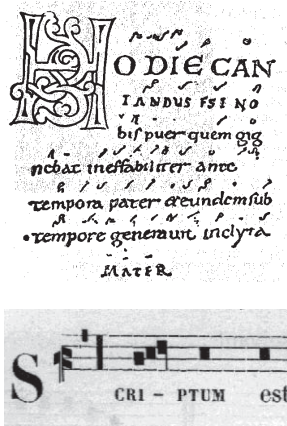 HODIE CAN
TANDUS EST NO
bis puer quem gig
nebat ineffabiliter ante
tempora pater & eundem sub
tempore generavit inclyta
MATER
SCRI - PTUM est